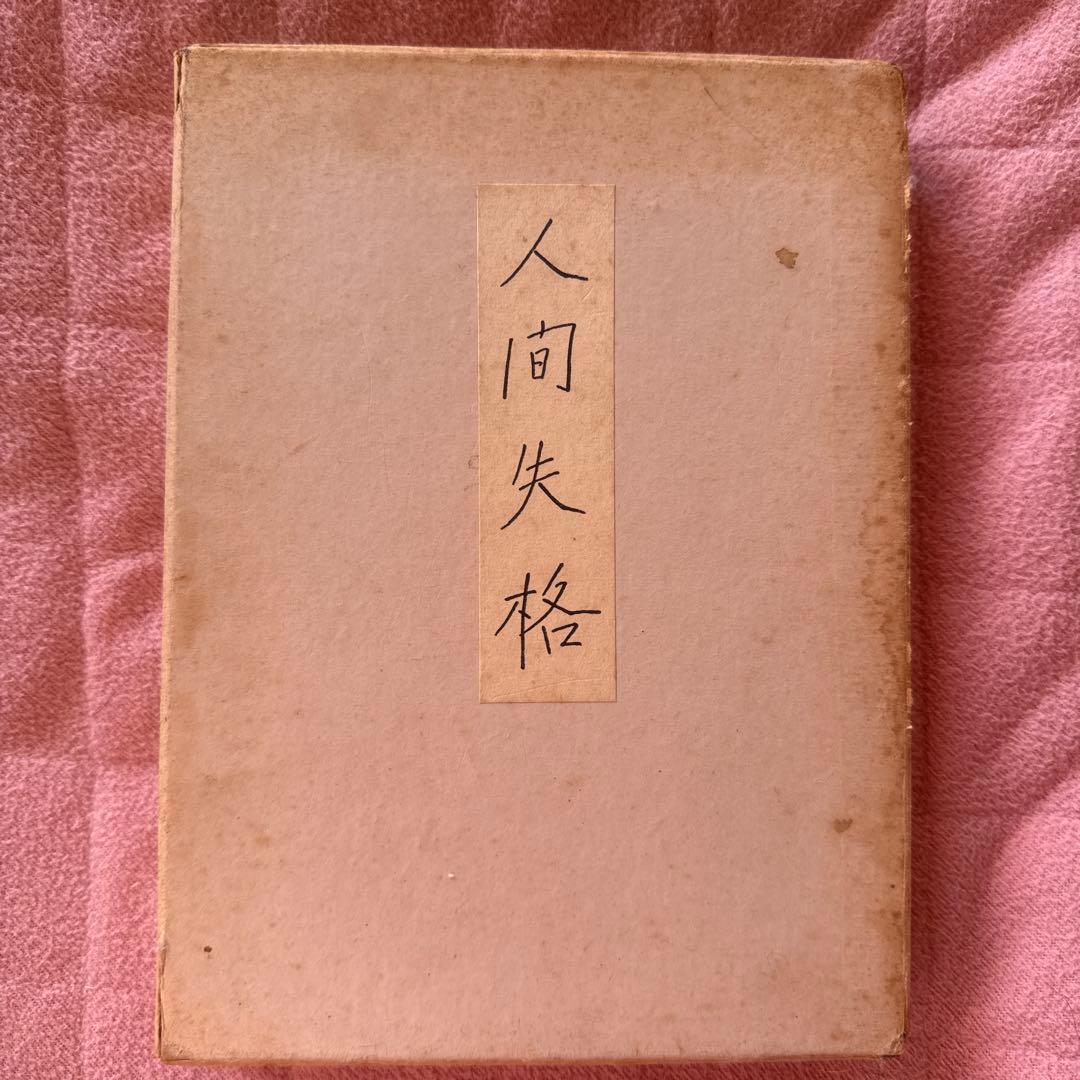 人間失格